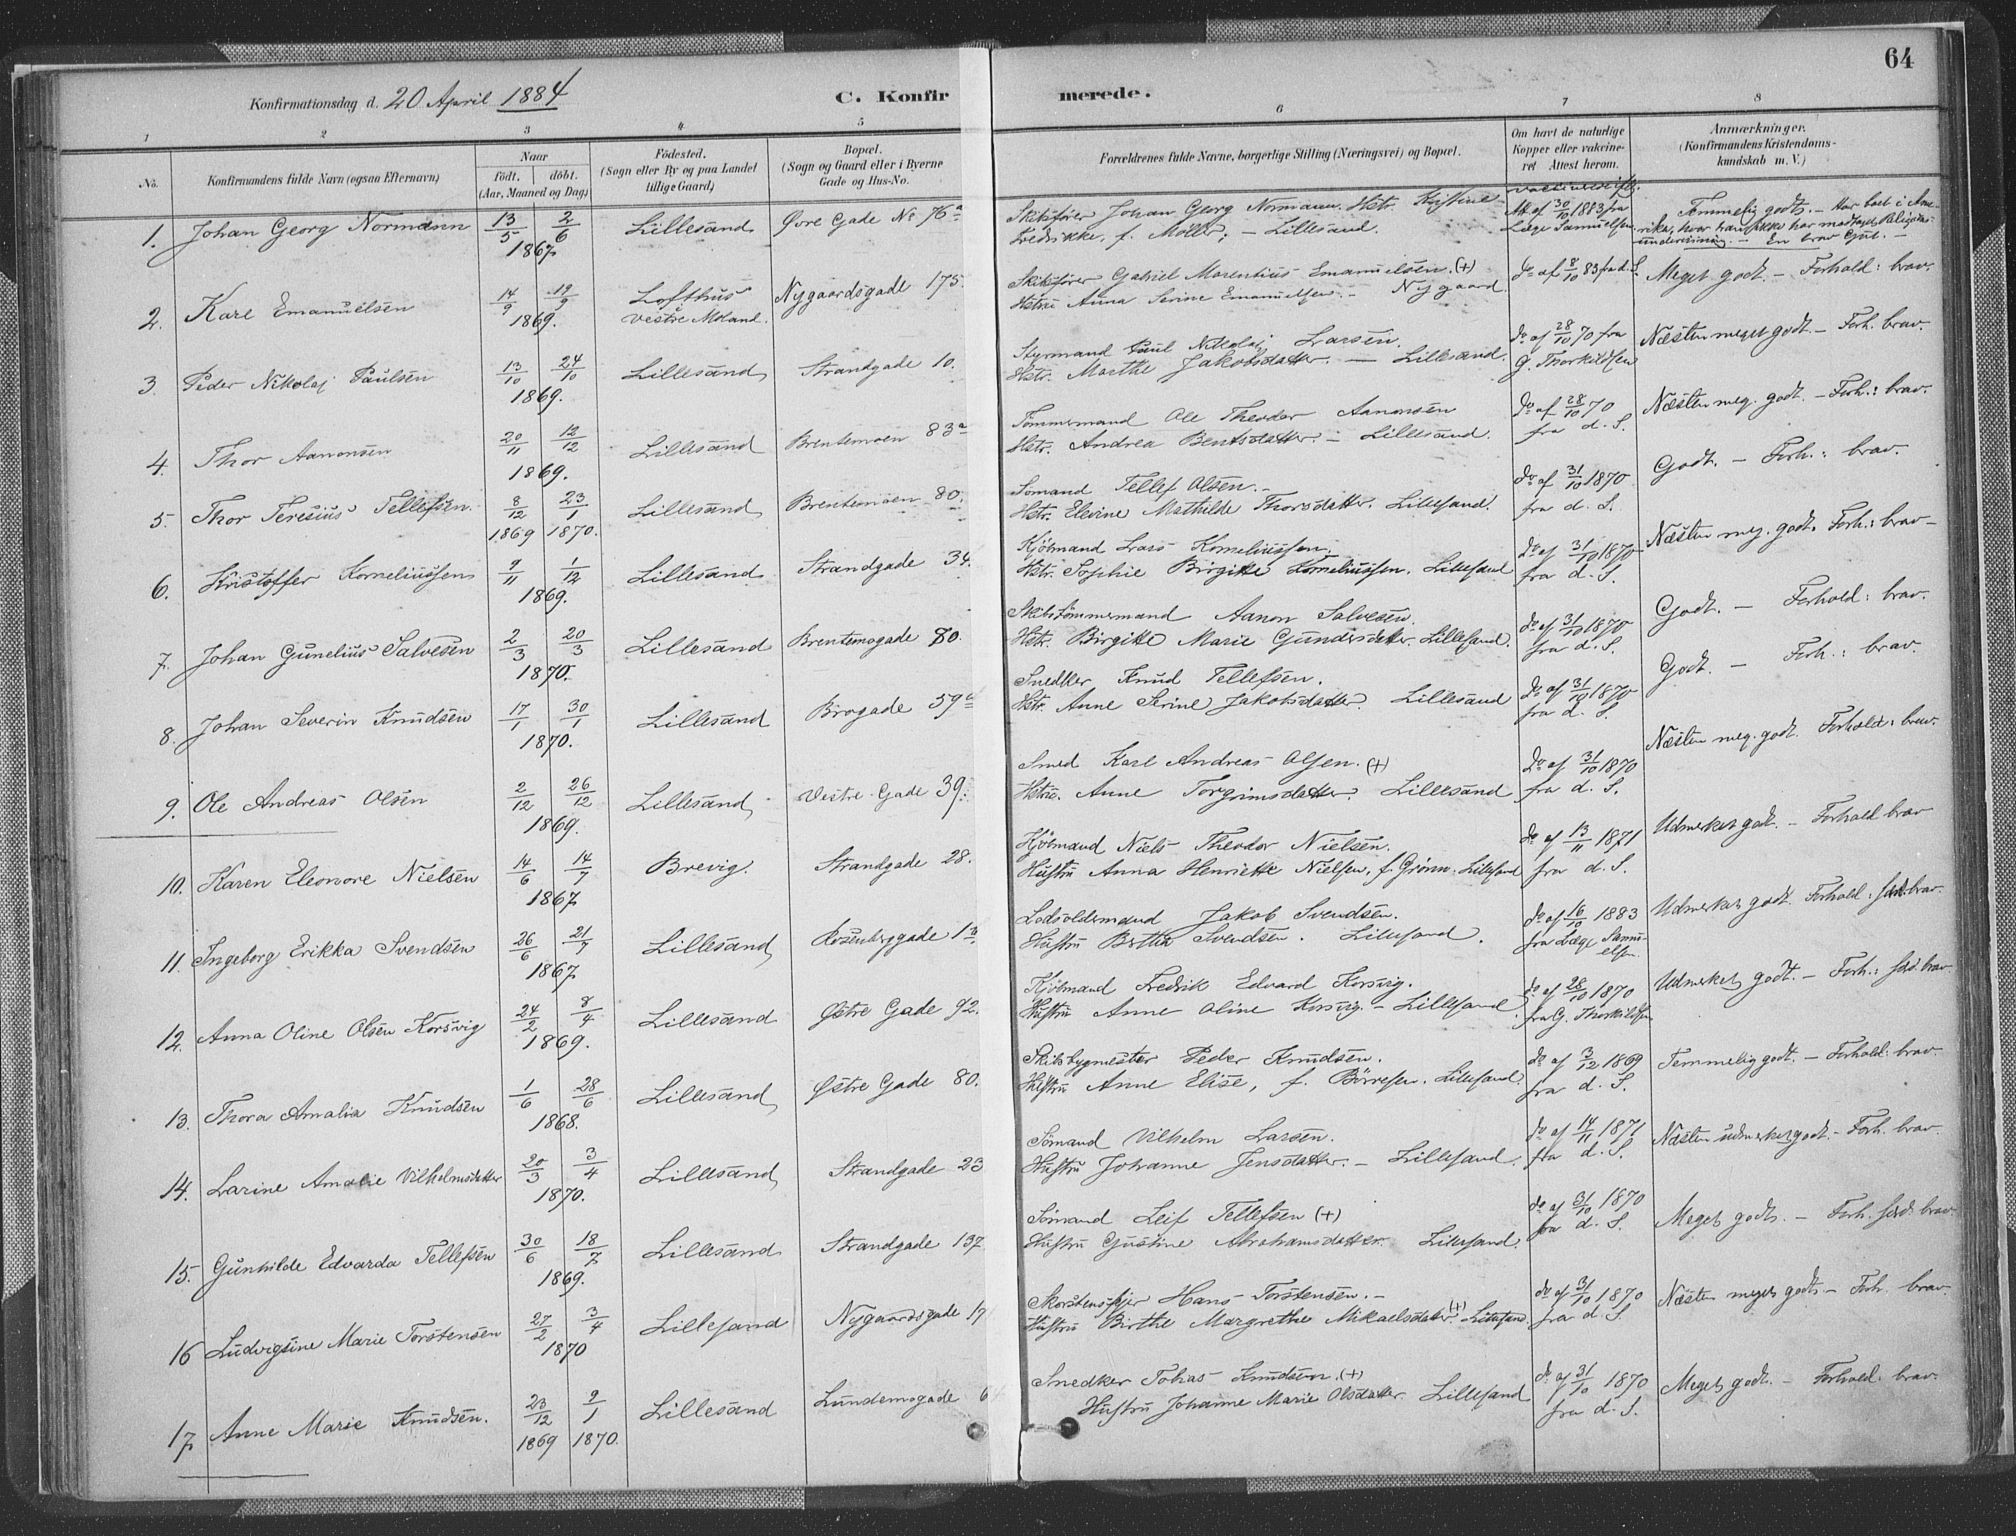 64
Konfirmationsdag d. 20 April 1884 C. Konfirmerede.
1 2 3 4 5 6 7 8
No. Konfirmandens fulde Navn (ogsaa Efternavn) Naar Født. døbt. (Aar, Maaned og Dag) Fødested. (Sogn eller By og paa Landet tillige Gaard) Bopæl. (Sogn og Gaard eller i Byerne Gade og Hus-No. Forældrenes fulde Navne, borgerlige Stilling (Næringsvei) og Bopæl. Om havt de naturlige Kopper eller vakcineret Attest herom. Anmærkninger. (Konfirmandens Kristendomskundskab m. V.)
1. Johan Georg Normann 13/5 2/6 1867 Lillesand Øvre Gade No 76a
Skibsfører Johan Georg Normann. Hstr. Kristine
Fredrikke, f. Möller; – Lillesand.
Att. af 30/10 1883 fra
Læge Samuelsen.
Temmelig godt. – Har boet i Amerika, hvor han ikke har modtaget Religionsundervisning. – En brav Gut. –
2. Karl Emanuelsen 14/9 19/9 1869. Lofthus Vestre Moland. Nygaardsgade 175.
Skibsfører Gabriel Morentius Emanuelsen. (+)
Hstru Anna Serine Emanuelsen. – Nygaard.
do af 8/10 83 fra d. S.
Meget godt – Forhold: brav.
3 Peder Nikolaj Paulsen 13/10 24/10 1869. Lillesand Strandgade 10.
Styrmand Paul Nikolaj Larsen.
Hstr. Marthe Jakobsdatter. – Lillesand.
do af 28/10 70 fra
G. Thorkildsen
Næsten meget godt. – Forh. brav.
4. Thor Aanonsen 20/11 12/12 1869. Lillesand Brentemoen 83a
Tømmermand Ole Theodor Aanonsen
Hstr. Andrea Bentsdatter. – Lillesand.
do af 28/10 70
fra d. S.
Næsten meg. godt. – Forh.: brav.
5. Thor Teresius Tellefsen. 8/12 1869 23/1 1870. Lillesand Brentemoen 80.
Sømand Tellef Olsen. –
Hstr. Elevine Mathilde Thorsdatter. Lillesand.
do af 31/10 1870
fra d. S.
Godt. – Forh.: brav.
6. Kristoffer Korneliussen 9/11 1/12 1869. Lillesand Strandgade 34.
Kjøbmand Lars Korneliussen.
Hstr. Sophie Birgitte Korneliussen. Lillesand
do af 31/10 1870
fra d. S.
Næsten meg. godt. Forh.: brav –
7. Johan Gunelius Salvesen 2/3 20/3 1870. Lillesand Brentemogade 80.
Skibstømmermand Aanon Salvesen.
Hstr. Birgitte Marie Gundersdatter. Lillesand.
do af 31/10 1870
fra d. S.
Godt. – Forhold: brav.
8. Johan Severin Knudsen 17/1 30/1 1870. Lillesand Brogade 59a
Snedker Knud Tellefsen.
Hstr. Anne Serine Jakobsdatter. Lillesand
do af 31/10 1870
fra d. S.
Godt. – Forh.: brav.
9. Ole Andreas Olsen 2/12 26/12 1869. Lillesand Vestre Gade 39.
Smed Karl Andreas Olsen. (+)
Hstru. Anne Torgrimsdatter. Lillesand
do af 31/10 1870
fra d. S.
Næsten meg. godt. Forhold: brav.
10. Karen Eleonore Nielsen 14/6 14/7 1867 Brevig. Strandgade 28.
Kjøbmand Niels Theodor Nielsen.
Hustru Anna Henriette Nielsen, f. Grønn. Lillesand
do af 13/11 1871
fra d. S.
Udmerket godt. – Forhold brav
11. Ingeborg Erikka Svendsen 26/6 21/7 1867 Lillesand Rosenberggade
Lodsoldermand Jakob Svendsen.
Hustru Bertha Svendsen. Lillesand.
do af 16/10 1883
fra Læge Samuelsen.
Udmerket godt. Forhold: brav.
12. Anna Oline Olsen Korsvig 24/2 8/4 1869. Lillesand Østre Gade 92.
Kjøbmand Fredrik Edvard Korsvig.
Hustru Anne Oline Korsvig. – Lillesand.
do af 28/10 1870
fra G. Thorkildsen
Udmerket godt. – Forh.: brav.
13. Thora Amalia Knudsen 1/6 28/6 1868. Lillesand Østre Gade 80.
Skibsbygmester Peder Knudsen.
Hustru Anne Elise, f. Börresen. Lillesand
do af 3/12 1869
fra d. S.
Temmelig godt. – Forhold: brav.
14. Larine Amalie Vilhelmsdatter 20/3 3/4 1870. Lillesand Strandgade 23
Sømand Vilhelm Larsen.
Hustru Johanne Jensdatter. – Lillesand.
do af 14/11 1871
fra d. S.
Næsten udmerket godt. – Forh. brav.
15. Gunhilde Edvarda Tellefsen 30/6 18/7 1869. Lillesand Strandgade 137
Sømand Leif Tellefsen (+)
Hustru Gustine Abrahamsdatter. Lillesand.
do af 31/10 1870
fra d. S.
Meget godt. – Forh. brav
16 Ludvigsine Marie Torstensen 27/2 3/4 1870 Lillesand Nygaardsgade 17
Skorstensfejer Hans Torstensen. –
Hustru Birthe Margrethe Mikaelsdatter (+) Lillesand.
do af 31/10 1870
fra d. S
Næsten meget godt. – Forh. brav.
17 Anne Marie Knudsen. 23/12 1869 9/1 1870. Lillesand Lundemogade 6
Snedker Tobias Knudsen. (+)
Hustru Johanne Marie Olsdatter. Lillesand
do af 31/10 1870
fra d. S.
Meget godt. – Forhold. brav.